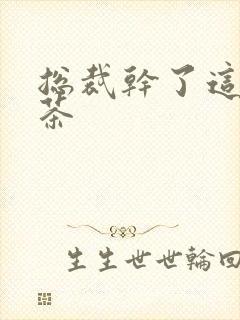 總裁幹了這
茶
生生世世輪回